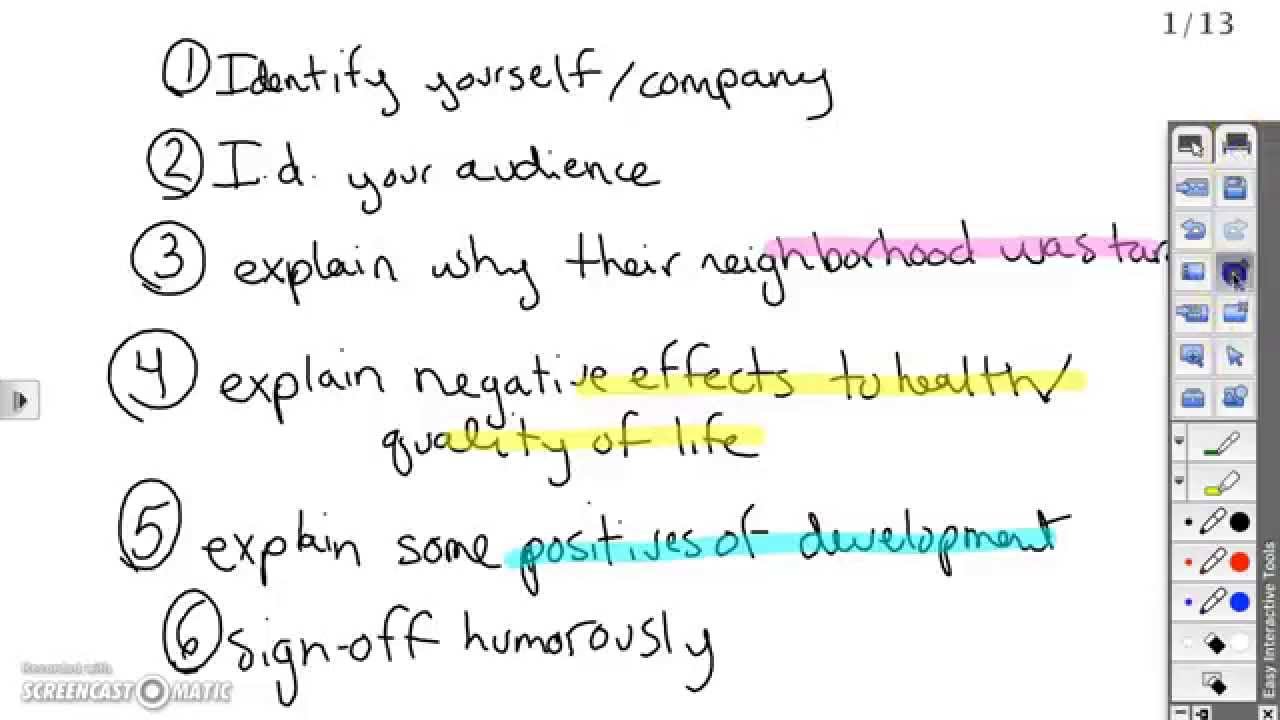 1/13
① Identify yourself/company
② I.d. your audience
③ explain why their neighborhood was tar
④ explain negative effects to health/
quality of life
⑤ explain some positives of development
⑥ sign-off humorously
Easy Interactive Tools
Recorded with
SCREENCAST-O-MATIC